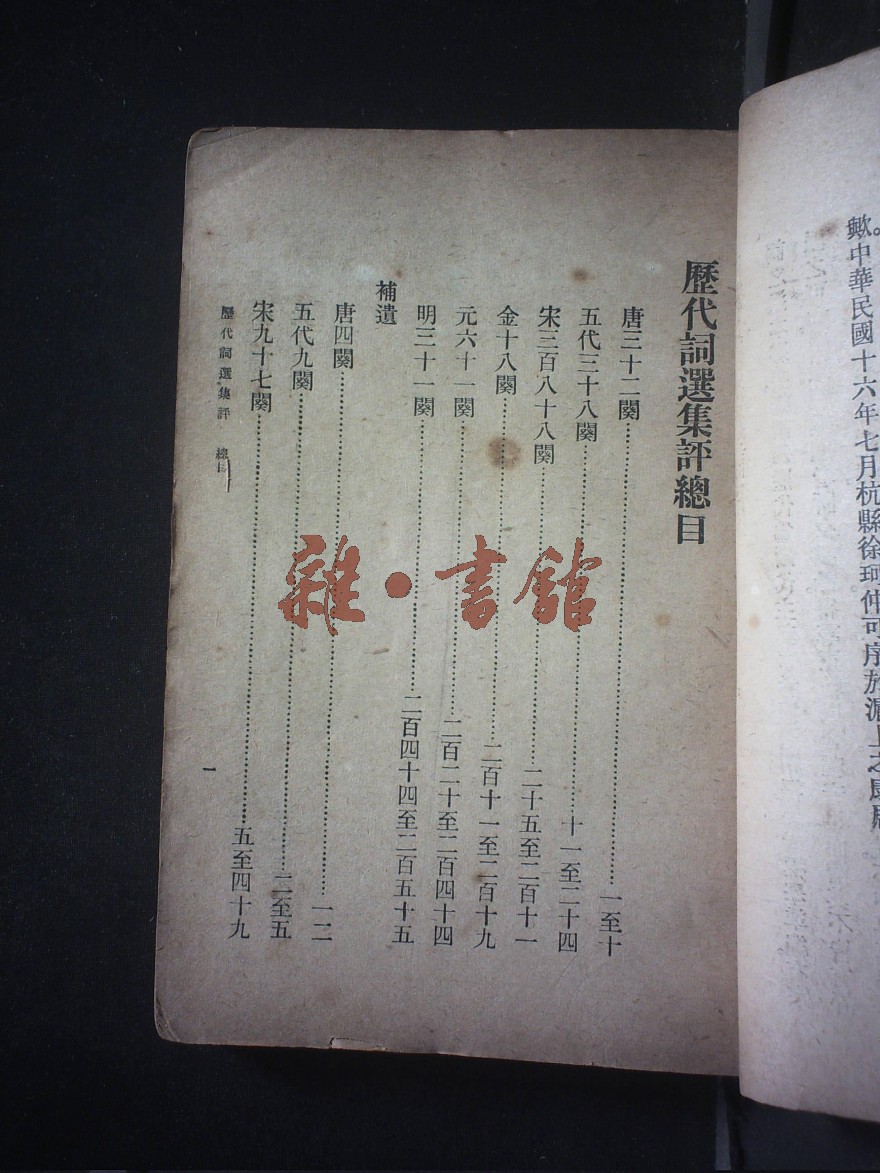 歟。中華民國十六年七月杭縣徐珂仲可序於滬上之康居
歷代詞選集評總目
唐三十二闋⋯⋯一至十
五代三十八闋⋯⋯十一至二十四
宋三百八十八闋⋯⋯二十五至二百十一
金十八闋⋯⋯二百十一至二百十九
元六十一闋⋯⋯二百二十至二百四十四
明三十一闋⋯⋯二百四十四至二百五十五
補遺
唐四闋⋯⋯一二
五代九闋⋯⋯二至五
宋九十七闋⋯⋯五至四十九
歷代詞選集評 總目
一
雜·書館